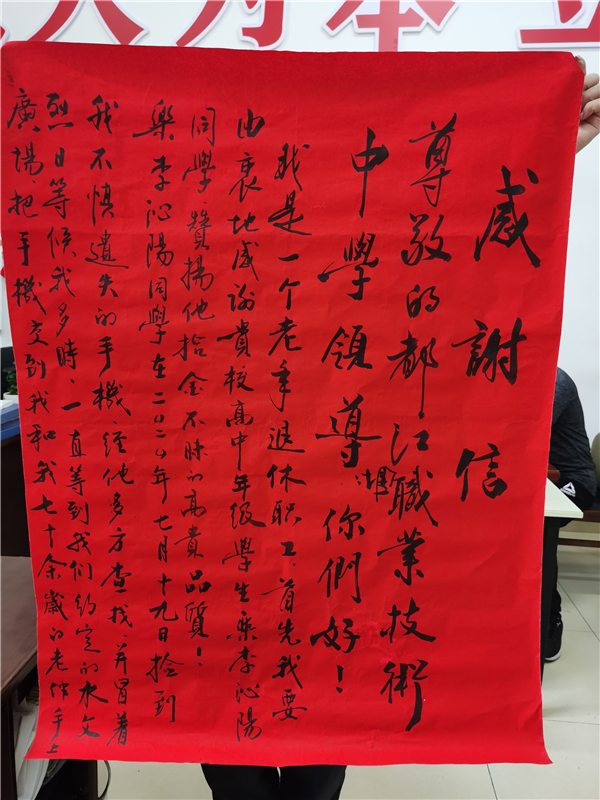 为本 立
感謝信
尊敬的都江堰職業技術
中學領導你們好！
我是一个老年退休职工、首先我要
由衷地感谢貴校高中年级學生栾李沁陽
同學、贊揚他拾金不昧的高貴品質！
樂李沁陽同學在二〇二〇年七月十九日捡到
我不慎遺失的手機、经他多方查找、并冒着
烈日等候我多時、一直等到我们约定的水文
廣場、把手機交到我和我七十余歲的老伴手上